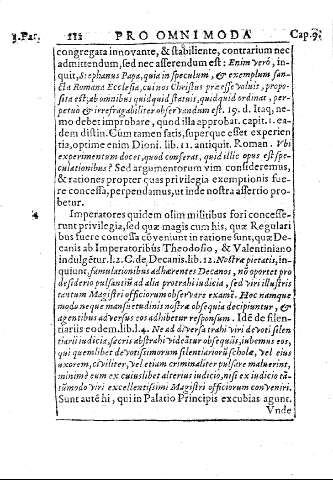 3.Par. 112 PRO OMNIMODA Cap.9.
congregata innovante, & stabiliente, contrarium nec
admittendum, sed nec afferendum est; Enim verò, in-
quit, Stephanus Papa, quia in speculum, & exemplum san-
cta Romana Ecclesia, cui nos Christus præesse voluit, propo-
sita est; ab omnibus quidquid statuit, quidquid ordinat, per-
petuò & irrefragabiliter observandum est. 19. d. Itaq; ne-
mo debet improbare, quod illa approbat. capit. 1. ea-
dem distin. Cùm tamen satis, superque esset experien
tia, optime enim Dioni. lib. 11. antiquit. Roman. Vbi
experimentum docet, quod conferat, quid illic opus est spe-
culationibus? Sed argumentorum vim consideremus,
& rationes propter quas privilegia exemptionis fuere
concessa, perpendamus, ut inde nostra assertio pro-
betur.
4 Imperatores quidem olim militibus fori concesse-
runt privilegia, sed quæ magis cum his, quæ Regulari
bus fuere concessa cõveniunt in ratione sunt, quæ De-
canis ab Imperatoribus Theodosio, & Valentiniano
indulgẽtur. l. 2. C. de Decanis. lib. 12. Nostra pietatis, in-
quiunt, famulationibus adhærentes Decanos, nõ oportet pro
desiderio pulsantiũ ad alia protrahi iudicia, sed viri illustris
tantum Magistri officiorum observare examẽ. Hoc namque
modo neque mansuetudinis nostræ obsequia decipiuntur, &
agentibus adversus eos adhibetur responsum. Idẽ de silen-
tiariis eodem. lib. l. 4. Ne ad diversa trahi viri devoti silen
tiarii iudicia, sacris abstrahi videãtur obsequiis, iubemus eos,
qui quemlibet devotissimorum silentiariorũ scholæ, vel eius
uxorem, civiliter, vel etiam criminaliter pulsare maluerint,
minimè eum ex cuiuslibet alterius iudicio, nisi ex iudicio tã-
tũmodo viri excellentissimi Magistri officiorum conveniri.
Sunt autẽ hi, qui in Palatio Principis excubias agunt.
Vnde